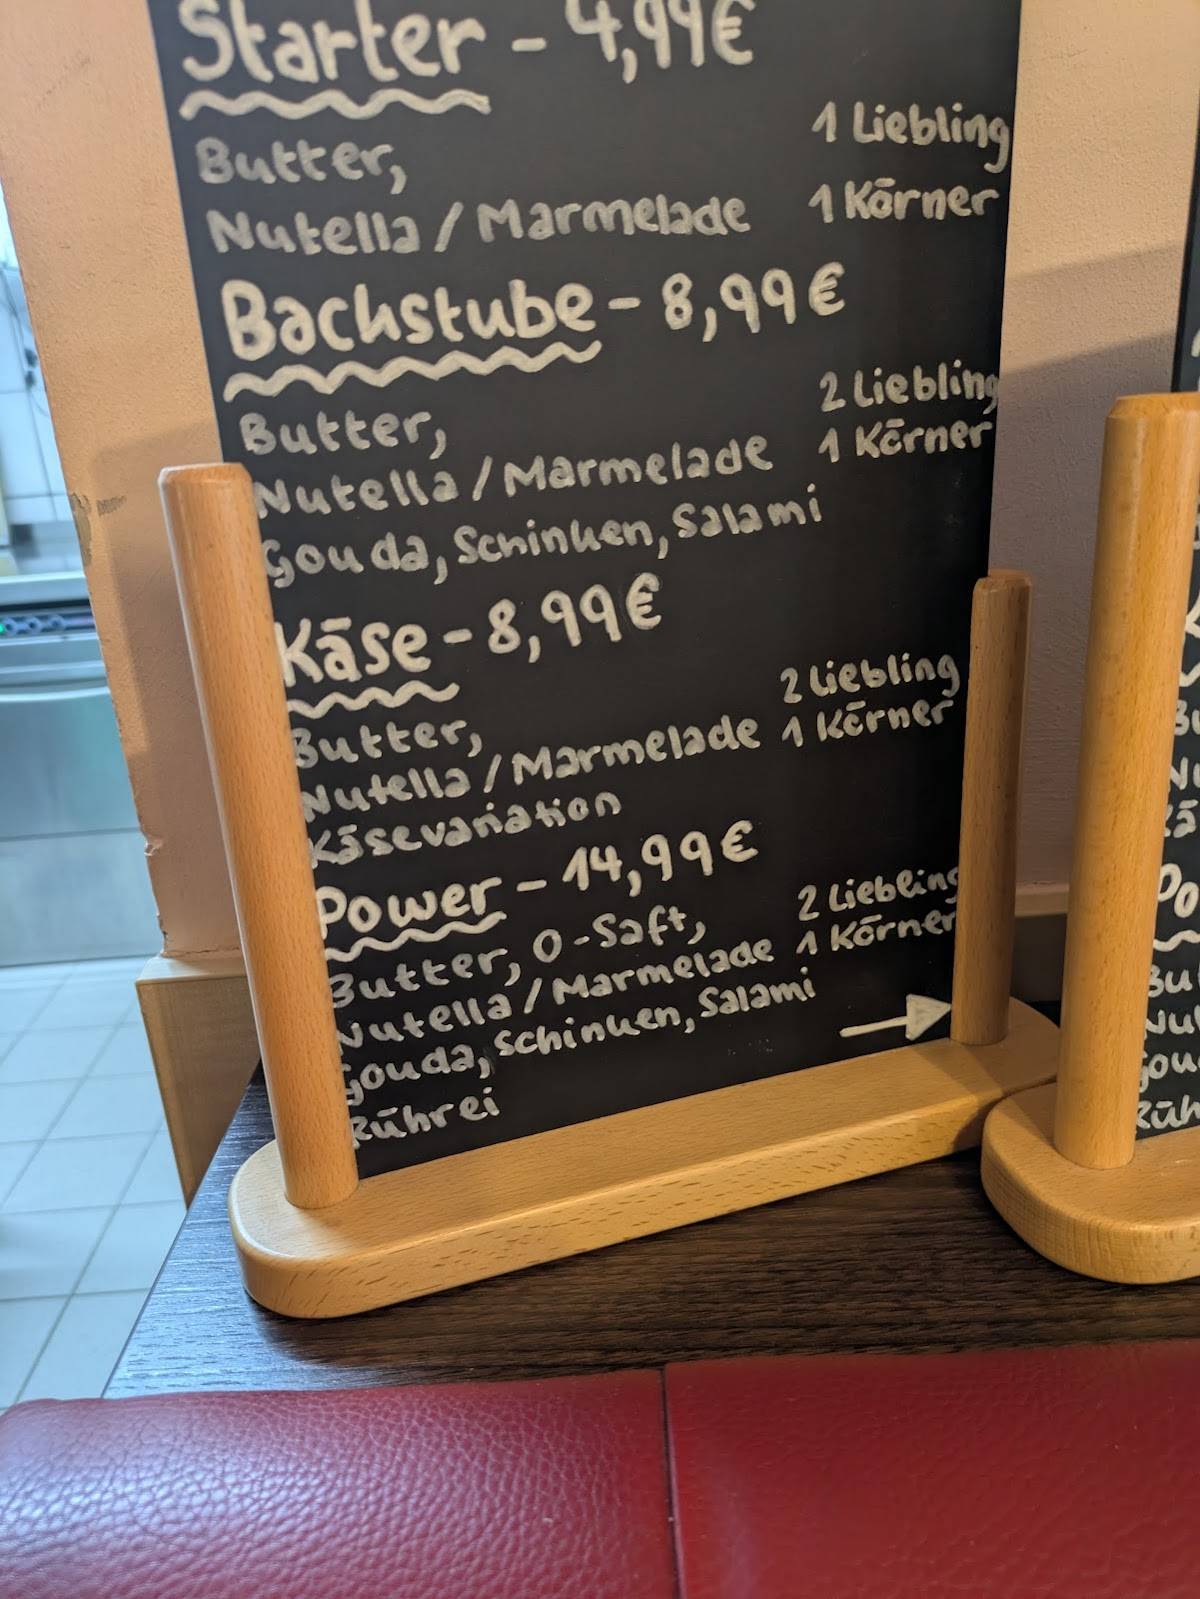 Starter - 4,99€
Butter, 1 Liebling
Nutella / Marmelade 1 Körner
Backstube - 8,99€
Butter, 2 Liebling
Nutella / Marmelade 1 Körner
Gouda, Schinken, Salami
Käse - 8,99€
Butter, 2 Liebling
Nutella / Marmelade 1 Körner
Käsevariation
Power - 14,99€
Butter, O-Saft, 2 Liebling
Nutella / Marmelade 1 Körner
Gouda, Schinken, Salami
Rührei